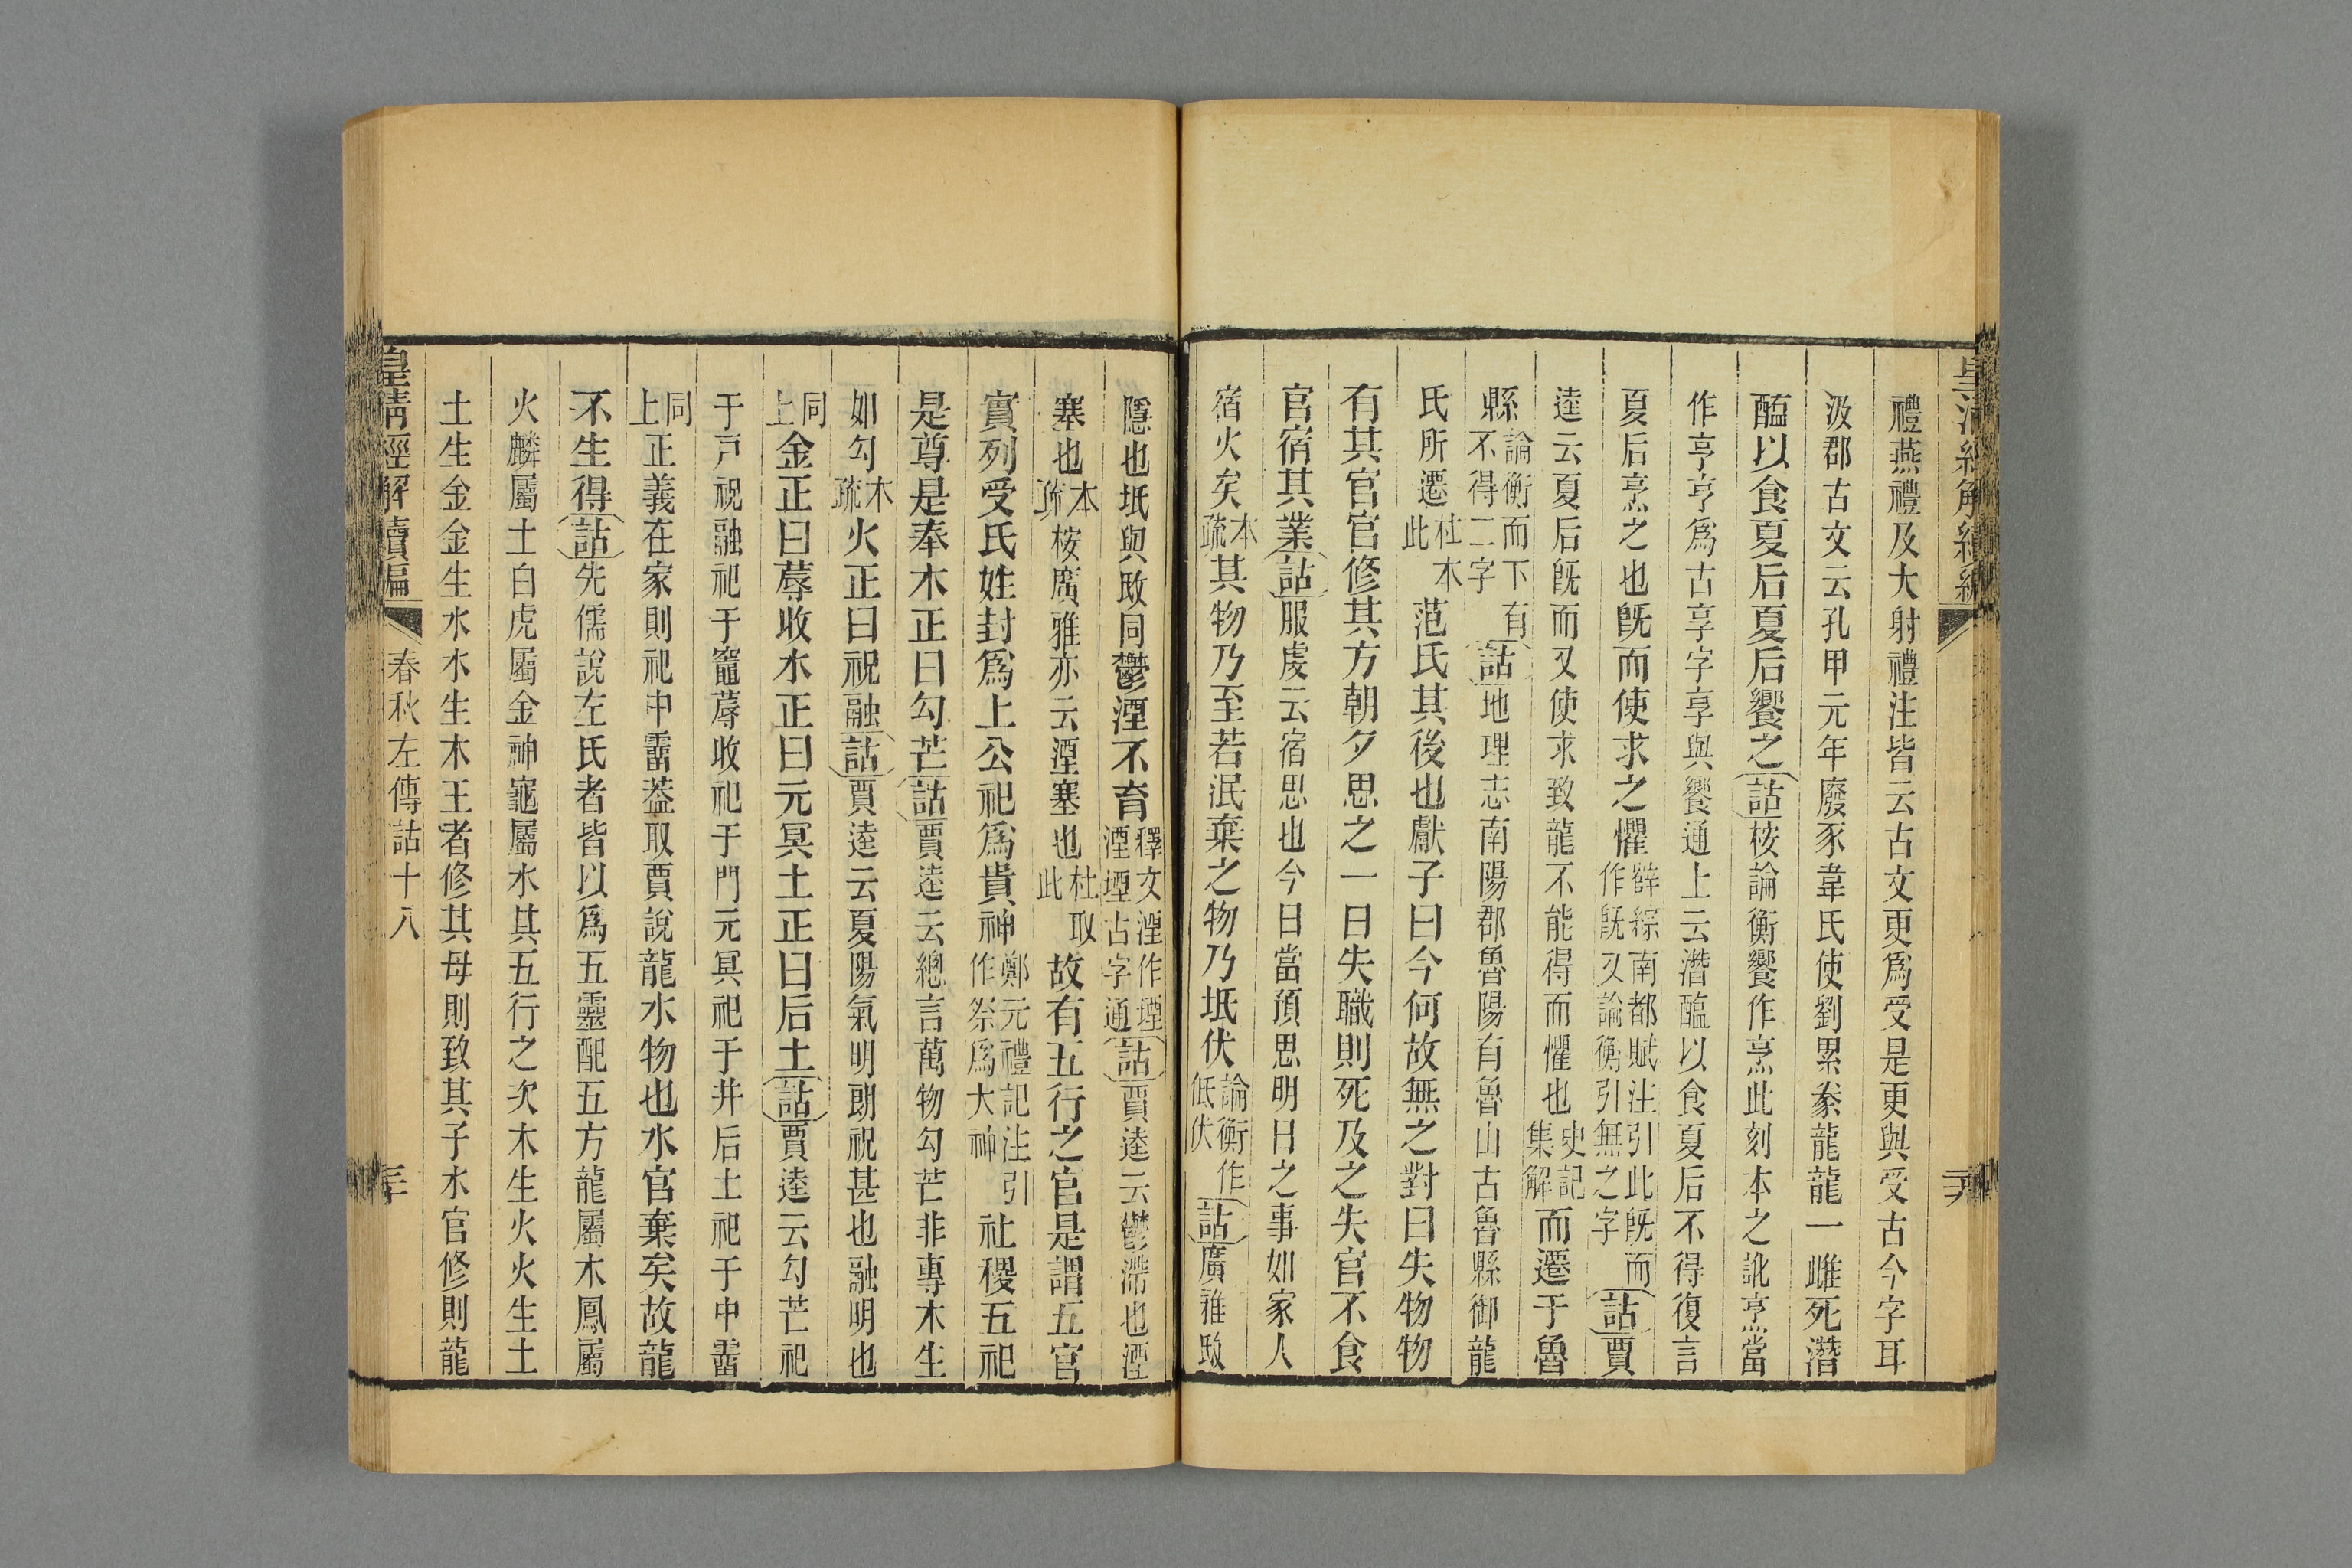 禮燕禮及大射禮注皆云古文更爲受是更與受古今字耳
汲郡古文云孔甲元年廢豕韋氏使劉累豢龍龍一雌死潛
醢以食夏后夏后饗之詁桉論衡饗作烹此刻本之訛烹當
作亨亨爲古享字享與饗通上云潛醢以食夏后不得復言
夏后烹之也旣而使求之懼薛綜南都賦注引此旣而作旣又論衡引無之字詁賈
逵云夏后旣而又使求致龍不能得而懼也史記集解而遷于魯
縣論衡而下有不得二字詁地理志南陽郡魯陽有魯山古魯縣御龍
氏所遷杜本此范氏其後也獻子曰今何故無之對曰失物物
有其官官修其方朝夕思之一日失職則死及之失官不食
官宿其業詁服虔云宿思也今日當預思明日之事如家人
宿火矣本疏其物乃至若泯棄之物乃坻伏論衡作低伏詁廣雅㱾
隱也坻與㱾同鬱湮不育釋文湮作堙湮堙古字通詁賈逵云鬱滯也湮
塞也本疏桉廣雅亦云湮塞也杜取此故有五行之官是謂五官
實列受氏姓封爲上公祀爲貴神鄭元禮記注引作祭爲大神社稷五祀
是尊是奉木正曰勾芒詁賈逵云總言萬物勾芒非專木生
如勾本疏火正曰祝融詁賈逵云夏陽氣明朗祝甚也融明也
同上金正曰蓐收水正曰元冥土正曰后土詁賈逵云勾芒祀
于戸祝融祀于竈蓐收祀于門元冥祀于井后土祀于中霤
同上正義在家則祀中霤葢取賈說龍水物也水官棄矣故龍
不生得詁先儒說左氏者皆以爲五靈配五方龍屬木鳳屬
火麟屬土白虎屬金神龜屬水其五行之次木生火火生土
土生金金生水水生木王者修其母則致其子水官修則龍
皇清經解續編
春秋左傳詁十八